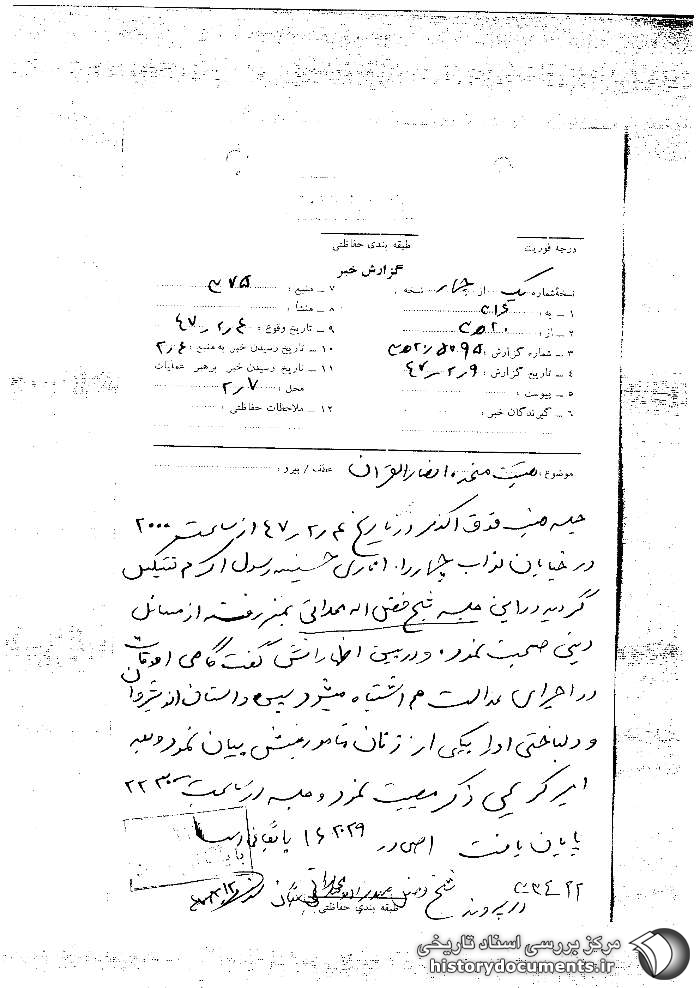 طبقه بندی حفاظتی
درجه فوریت
گزارش خبر
نسخه شماره یک از چهار نسخه
۱ ـ به :
۲ ـ از : ۲۰
۳ ـ شماره گزارش :
۴ ـ تاریخ گزارش : ۴۷٫۲٫۹
۵ ـ پیوست :
۶ ـ گیرندگان خبر :
۷ ـ منبع :
۸ ـ منشأ :
۹ ـ تاریخ وقوع : ۴۷٫۲٫۴
۱۰ ـ تاریخ رسیدن خبر به منبع : ۲٫۴
۱۱ ـ تاریخ رسیدن خبر برهبر عملیات
محل : ۲٫۷
۱۲ ـ ملاحظات حفاظتی :
موضوع : هیئت متحده انصارالقرآن عطف / پیرو :
جلسه هیئت فوق الذکر در تاریخ ۴۷٫۲٫۴ از ساعت ۲۰۰۰
در خیابان نواب چهارراه حسینیه رسول اکرم تشکیل
گردید در این جلسه شیخ فضل اله محلاتی بمنبر رفته از مسائل
دینی صحبت نمود و در بین اظهاراتش گفت گاهی اوقات
در اجرای عدالت هم اشتباه میشود سپس داستان انوشیروان
و دلباختی او را بیکی از زنان مأمورینش بیان نمود و بعد
امیر کریمی ذکر مصیبت نمود و جلسه در ساعت ۲۲۳۰
پایان یافت اصل در
در پرونده شیخ فضل محلاتی
طبقه بندی حفاظتی
مرکز بررسی اسناد تاریخی
historydocuments.ir